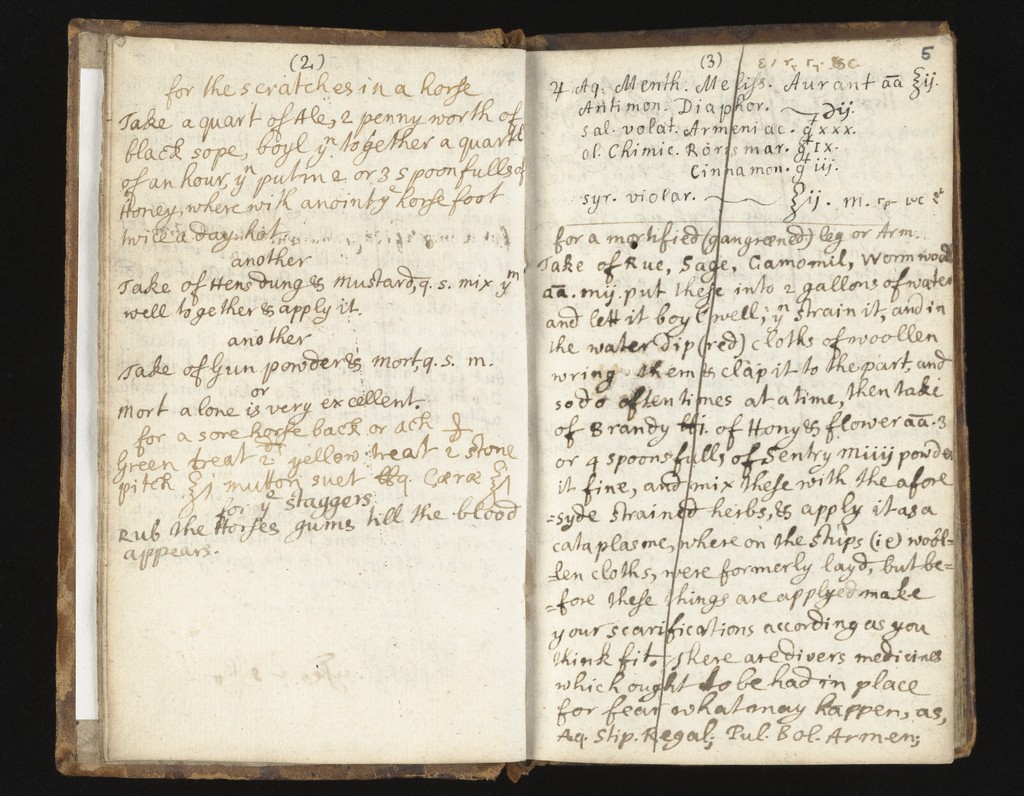 (2)
for the scratches in a horse
Take a quart of Ale, 2 penny worth of
black sope, boyl yn together a quart
of an hour, yn put in 2 or 3 spoonfulls of
Honey, where with anoint ye horse foot
twice a day hot.
another
Take of Hens dung & mustard, q. s. mix ym
well together & apply it.
another
Take of Gun powder & mort, q. s. m.
or
Mort alone is very excellent.
for a sore horse back or ack
Green treat 2d yellow treat 2 stone
pitch ℥j mutton suet q. Cæræ ℥j
for ye staggers
Rub the Horses gums till the blood
appears.
(3)
5
♃ Aq. Menth. Meliss. Aurant āā ℥ij.
Antimon. Diaphor. ℈ij.
sal. volat. Armeniac. gt xxx.
ol. Chimic. Rorismar. gt IX.
Cinnamon. gt iij.
syr. violar. ℥ij. m.
for a mortified (gangreened) leg or Arm.
Take of Rue, Sage, Camomil, Wormwood
āā. mij. put these into 2 gallons of water
and lett it boyl well; yn strain it, and in
the water dip (red) cloths of woollen
wring them & clap it to the part, and
so do often times at a time, then take
of Brandy ℔i. of Hony & flower āā. 3
or 4 spoonsfull, of Sentry miiij powder
it fine, and mix these with the afore
=syde strained herbs, & apply it as a
cataplasme, where on the stups (ie) wool=
=len cloths, were formerly layd, but be=
=fore these things are applyed make
your scarifications according as you
think fit. There are divers medicines
which ought to be had in place
for fear what may happen, as,
Aq. Stip. Regal; Pul. bol. Armen;